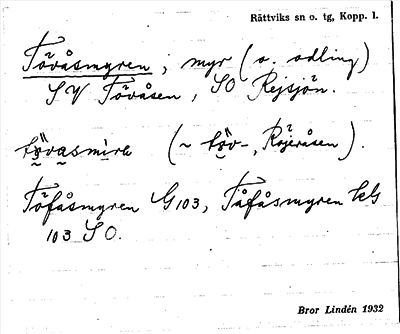 Rättviks sn o. tg, Kopp. l.
Tövåsmyren ; myr (o. odling)
SV Tövåsen, SO Rejsjön.
tövasmirɛ (~ töv-, Röjeråsen).
Töfåsmyren G 103, Tåfåsmyren kG
103 SO.
Bror Lindén 1932